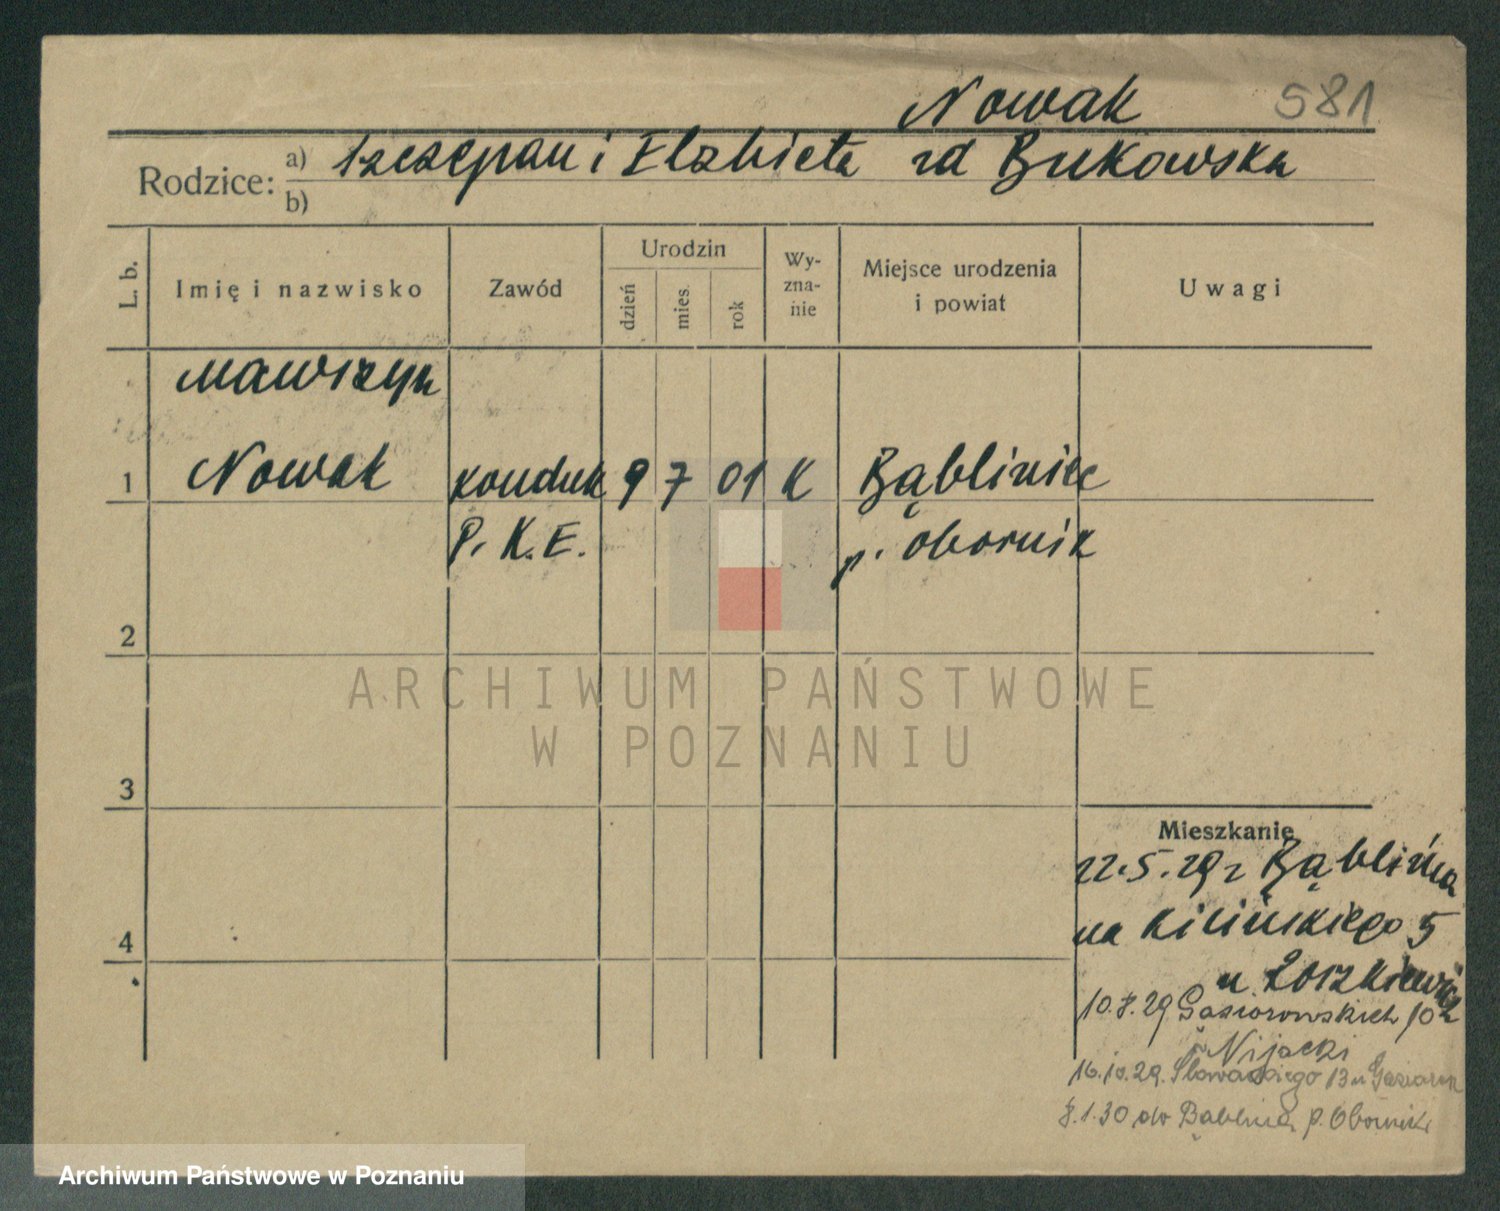 Nowak 581
Rodzice: a) Szczepan i Elzbieta zd Bukowska
b)
L. b. Imię i nazwisko Zawód Urodzin dzień mies. rok Wy-zna-nie Miejsce urodzenia i powiat Uwagi
Wawrzyn
1 Nowak konduk 9 7 01 K Bąbliniec
P. K. E. p. obornik
2
ARCHIWUM PAŃSTWOWE
W POZNANIU
3
Mieszkanie
22.5.29 z Bąblińca
na Kilińskiego 5
u
4
10.8.29 Gąsiorowskich 10
u Nijacki
16.10.29. Słowackiego 13 u
8.1.30 do Bąblińca p. Obornik
Archiwum Państwowe w Poznaniu